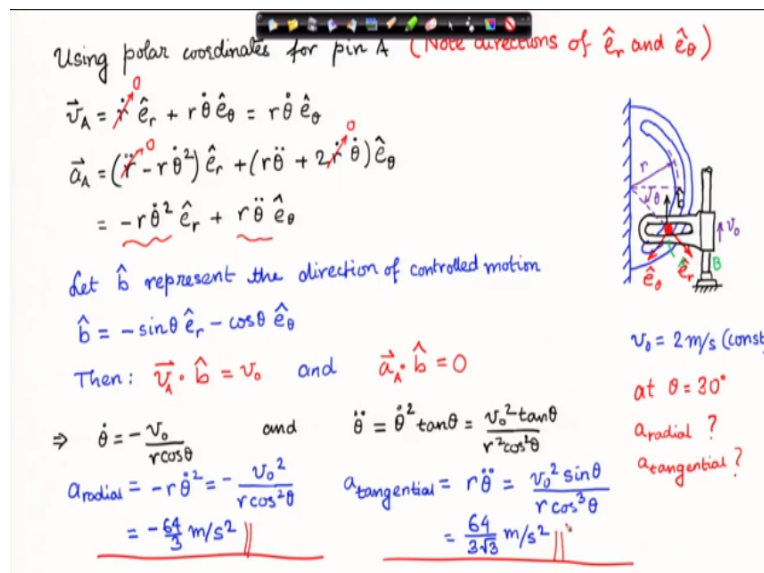 Using polar coordinates for pin A (Note directions of êr and êθ)
v⃗_A = ṙ êr + rθ̇ êθ = rθ̇ êθ
0
a⃗_A = (r̈ - rθ̇²) êr + (rθ̈ + 2ṙθ̇) êθ
0 0
= -rθ̇² êr + rθ̈ êθ
Let b̂ represent the direction of controlled motion
b̂ = -sinθ êr - cosθ êθ
Then: v⃗_A · b̂ = v₀ and a⃗_A · b̂ = 0
⇒ θ̇ = -v₀/(r cosθ) and θ̈ = θ̇² tanθ = v₀² tanθ/(r² cos²θ)
a_radial = -rθ̇² = -v₀²/(r cos²θ)
= -64/3 m/s²
a_tangential = rθ̈ = v₀² sinθ/(r cos³θ)
= 64/(3√3) m/s²
r
θ
v₀
B
êθ
êr
v₀ = 2 m/s (const
at θ = 30°
a_radial ?
a_tangential ?